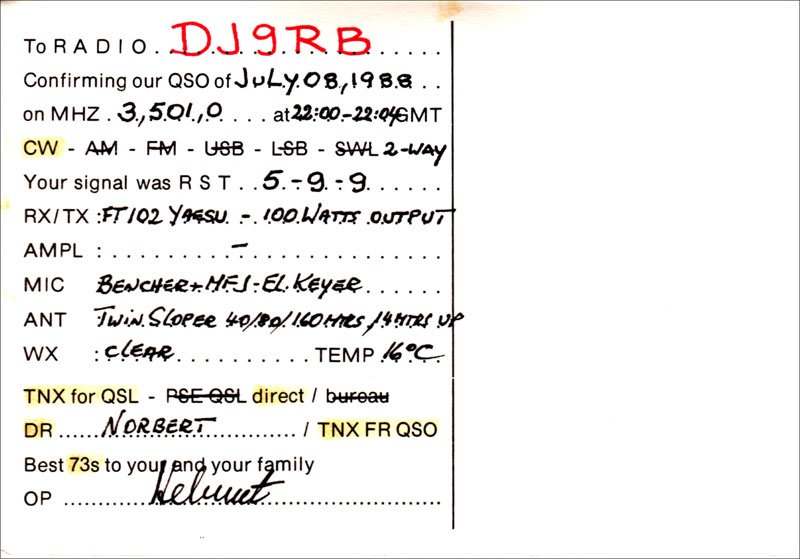 To RADIO . DJ9RB . . . . . .
Confirming our QSO of JULY.08,1988 . .
on MHZ . 3,501,0 . . . . at 22:00-22:04 GMT
CW - AM - FM - USB - LSB - SWL 2-WAY
Your signal was R S T . . 5.-9.-9 . . . . . .
RX/TX : FT102 YAESU - 100 WATTS OUTPUT
AMPL : . . . . . . . . - . . . . . . . . . . . . .
MIC BENCHER + MFJ-EL.KEYER . . . . . .
ANT TWIN.SLOPER 40/80/160MTRS,14MTRS UP
WX : CLEAR . . . . . . . . . . TEMP 16°C.
TNX for QSL - PSE QSL direct / bureau
DR ...... NORBERT .............. / TNX FR QSO
Best 73s to you and your family
OP .............. Helmut ..............................